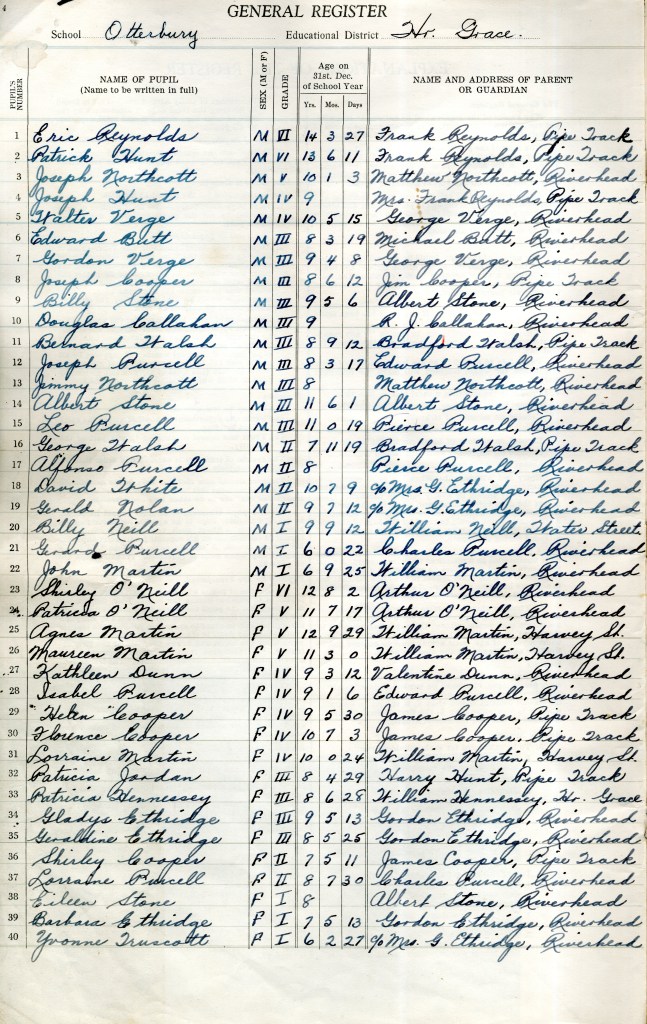 4
GENERAL REGISTER
School Otterbury Educational District Hr. Grace.
PUPIL'S NUMBER NAME OF PUPIL (Name to be written in full) SEX (M or F) GRADE Age on 31st. Dec. of School Year Yrs. Mos. Days NAME AND ADDRESS OF PARENT OR GUARDIAN
1 Eric Reynolds M VI 14 3 27 Frank Reynolds, Pipe Track
2 Patrick Hunt M VI 13 6 11 Frank Reynolds, Pipe Track
3 Joseph Northcott M V 10 1 3 Matthew Northcott, Riverhead
4 Joseph Hunt M IV 9 Mrs. Frank Reynolds, Pipe Track
5 Walter Verge M IV 10 5 15 George Verge, Riverhead
6 Edward Butt M III 8 3 19 Michael Butt, Riverhead
7 Gordon Verge M III 9 4 8 George Verge, Riverhead
8 Joseph Cooper M III 8 6 12 Jim Cooper, Pipe Track
9 Billy Stone M III 9 5 6 Albert Stone, Riverhead
10 Douglas Callahan M III 9 R. J. Callahan, Riverhead
11 Bernard Walsh M III 8 9 12 Bradford Walsh, Pipe Track
12 Joseph Purcell M III 8 3 17 Edward Purcell, Riverhead
13 Jimmy Northcott M III 8 Matthew Northcott, Riverhead
14 Albert Stone M III 11 6 1 Albert Stone, Riverhead
15 Leo Purcell M III 11 0 19 Pierce Purcell, Riverhead
16 George Walsh M II 7 11 19 Bradford Walsh, Pipe Track
17 Alfonso Purcell M II 8 Pierce Purcell, Riverhead
18 David White M II 10 7 9 c/o Mrs. G. Ethridge, Riverhead
19 Gerald Nolan M II 9 7 12 c/o Mrs. G. Ethridge, Riverhead
20 Billy Neill M I 9 9 12 William Neill, Water Street.
21 Gerard Purcell M I 6 0 22 Charles Purcell, Riverhead
22 John Martin M I 6 9 25 William Martin, Riverhead
23 Shirley O'Neill F VI 12 8 2 Arthur O'Neill, Riverhead
24 Patricia O'Neill F V 11 7 17 Arthur O'Neill, Riverhead
25 Agnes Martin F V 12 9 29 William Martin, Harvey St.
26 Maureen Martin F V 11 3 0 William Martin, Harvey St.
27 Kathleen Dunn F IV 9 3 12 Valentine Dunn, Riverhead
28 Isabel Purcell F IV 9 1 6 Edward Purcell, Riverhead
29 "Helen" Cooper F IV 9 5 30 James Cooper, Pipe Track
30 Florence Cooper F IV 10 7 3 James Cooper, Pipe Track
31 Lorraine Martin F IV 10 0 24 William Martin, Harvey St.
32 Patricia Jordan F III 8 4 29 Harry Hunt, Pipe Track
33 Patricia Hennessey F III 8 6 28 William Hennessey, Hr. Grace
34 Gladys Ethridge F III 9 5 13 Gordon Ethridge, Riverhead
35 Geraldine Ethridge F III 8 5 25 Gordon Ethridge, Riverhead
36 Shirley Cooper F II 7 5 11 James Cooper, Pipe Track
37 Lorraine Purcell F II 8 7 30 Charles Purcell, Riverhead
38 Eileen Stone F I 8 Albert Stone, Riverhead
39 Barbara Ethridge F I 7 5 13 Gordon Ethridge, Riverhead
40 Yvonne Truscott F I 6 2 27 c/o Mrs. G. Ethridge, Riverhead